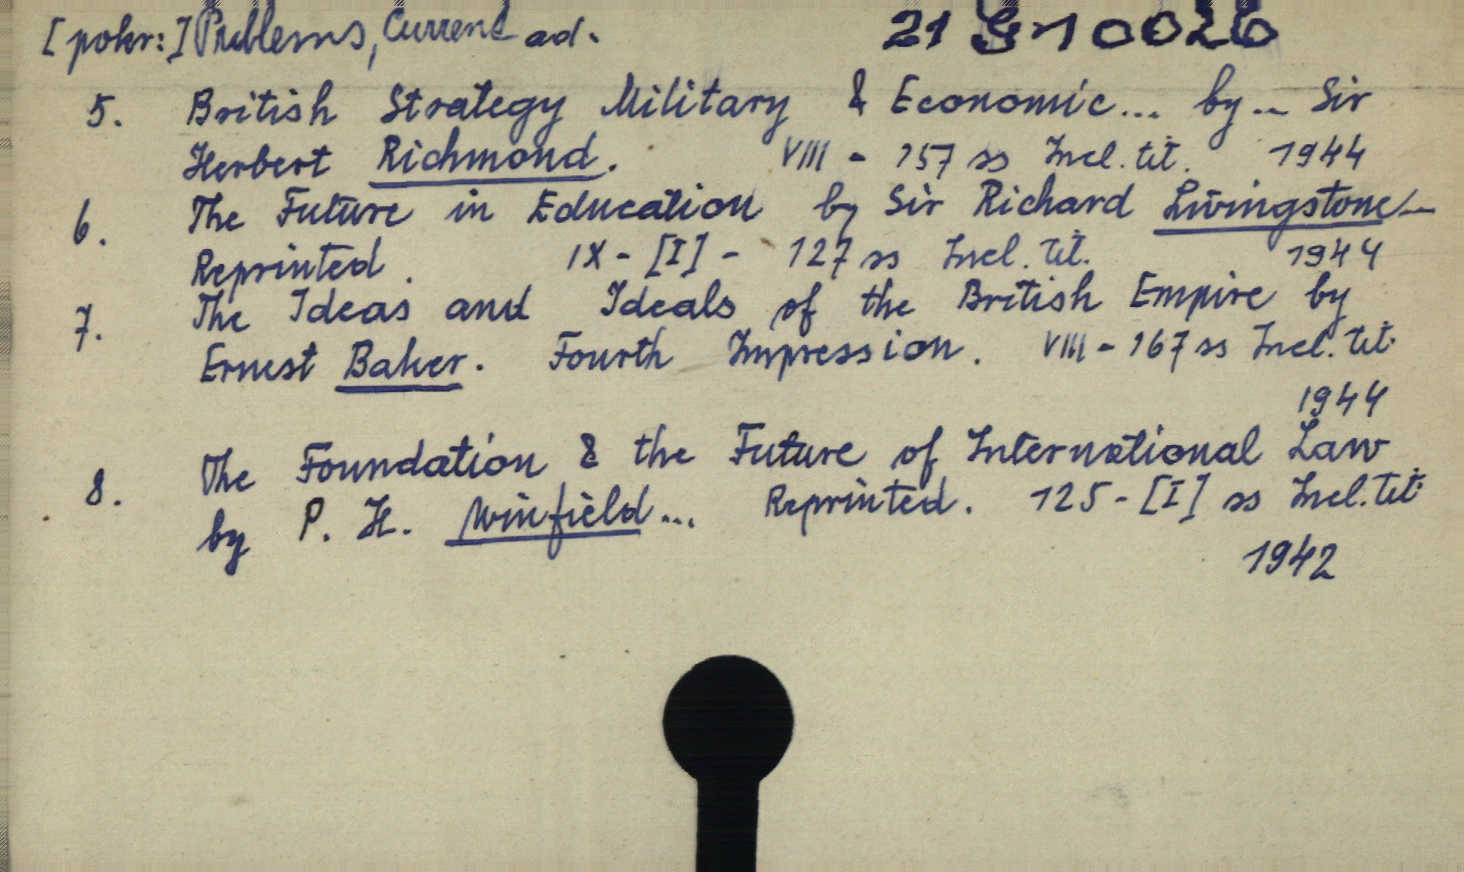 [pokr:] Problems, Current ad. 21 G 10026
5. British Strategy Military & Economic... by... Sir
Herbert Richmond. VIII - 157 ss Incl. tit. 1944
6. The Future in Education by Sir Richard Livingstone
Reprinted. IX - [I] - 127 ss Incl. tit. 1944
7. The Ideas and Ideals of the British Empire by
Ernest Baker. Fourth Impression. VIII - 167 ss Incl. tit.
1944
8. The Foundation & the Future of International Law
by P. H. Winfield... Reprinted. 125 - [I] ss Incl. tit.
1942